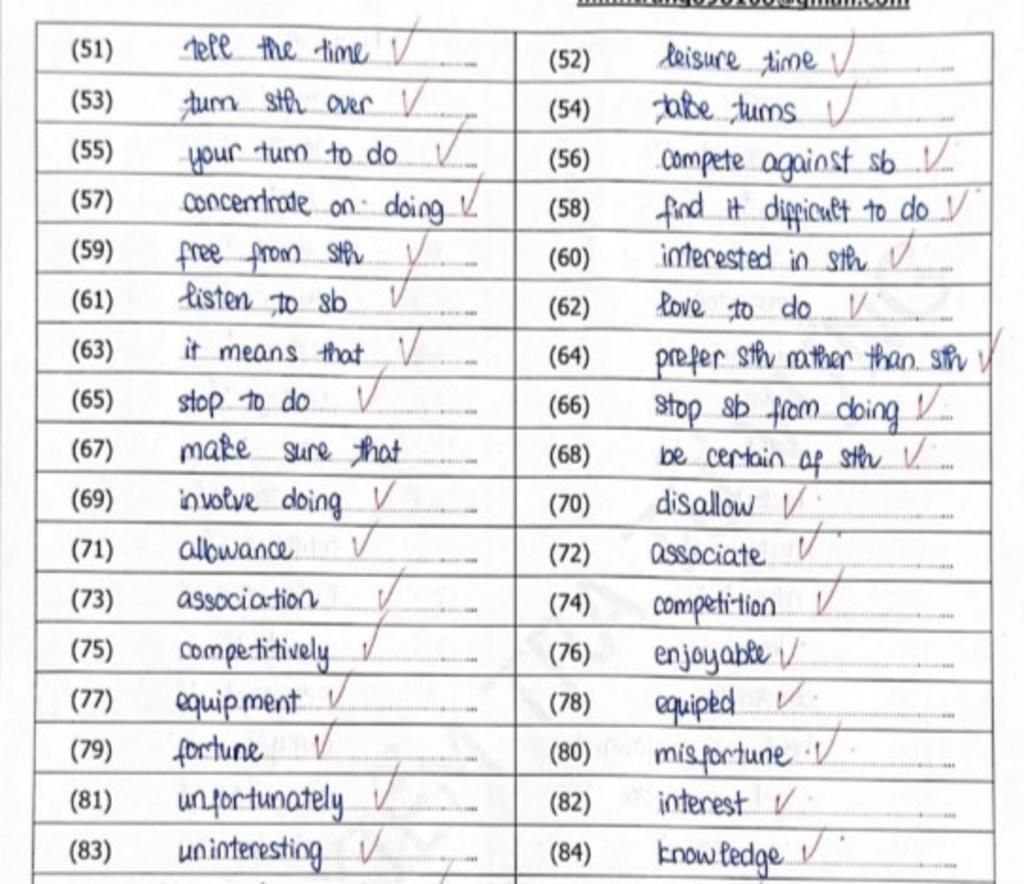 (51) tell the time
(52) leisure time
(53) turn sth over
(54) take turns
(55) your turn to do
(56) compete against sb
(57) concentrate on doing
(58) find it difficult to do
(59) free from sth
(60) interested in sth
(61) listen to sb
(62) love to do
(63) it means that
(64) prefer sth rather than sth
(65) stop to do
(66) stop sb from doing
(67) make sure that
(68) be certain of sth
(69) involve doing
(70) disallow
(71) allowance
(72) associate
(73) association
(74) competition
(75) competitively
(76) enjoyable
(77) equipment
(78) equipted
(79) fortune
(80) misfortune
(81) unfortunately
(82) interest
(83) uninteresting
(84) knowledge